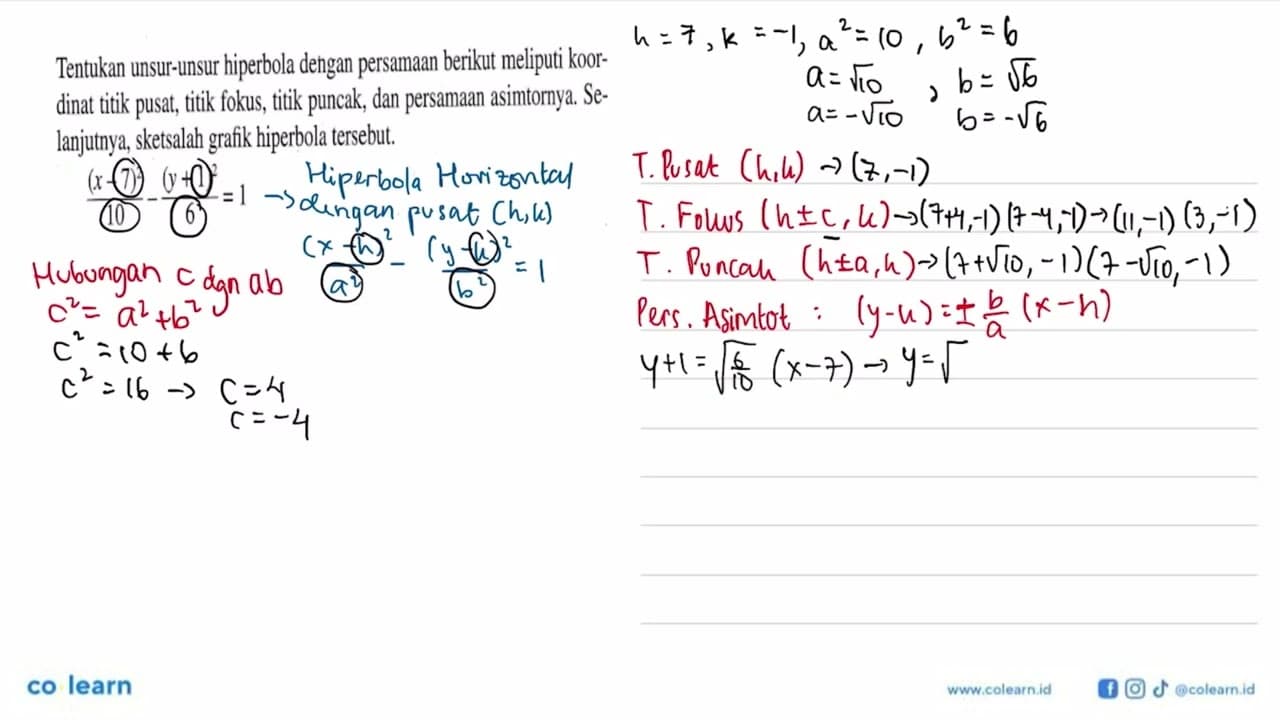 Tentukan unsur-unsur hiperbola dengan persamaan berikut meliputi koor-
dinat titik pusat, titik fokus, titik puncak, dan persamaan asimtornya. Se-
lanjutnya, sketsalah grafik hiperbola tersebut.
(x-7)²/10 - (y+1)²/6 = 1
→ Hiperbola Horizontal
dengan pusat (h,k)
(x-h)²/a² - (y-k)²/b² = 1
Hubungan c dgn ab
c² = a² + b²
c² = 10 + 6
c² = 16 → c = 4
c = -4
h = 7, k = -1, a² = 10, b² = 6
a = √10 , b = √6
a = -√10 b = -√6
T. Pusat (h,k) → (7,-1)
T. Fokus (h±c, k) → (7+4,-1) (7-4,-1) → (11,-1) (3,-1)
T. Puncak (h±a, k) → (7+√10, -1) (7-√10, -1)
Pers. Asimtot : (y-k) = ± b/a (x-h)
y+1 = √6/10 (x-7) → y = √
co learn
www.colearn.id @colearn.id